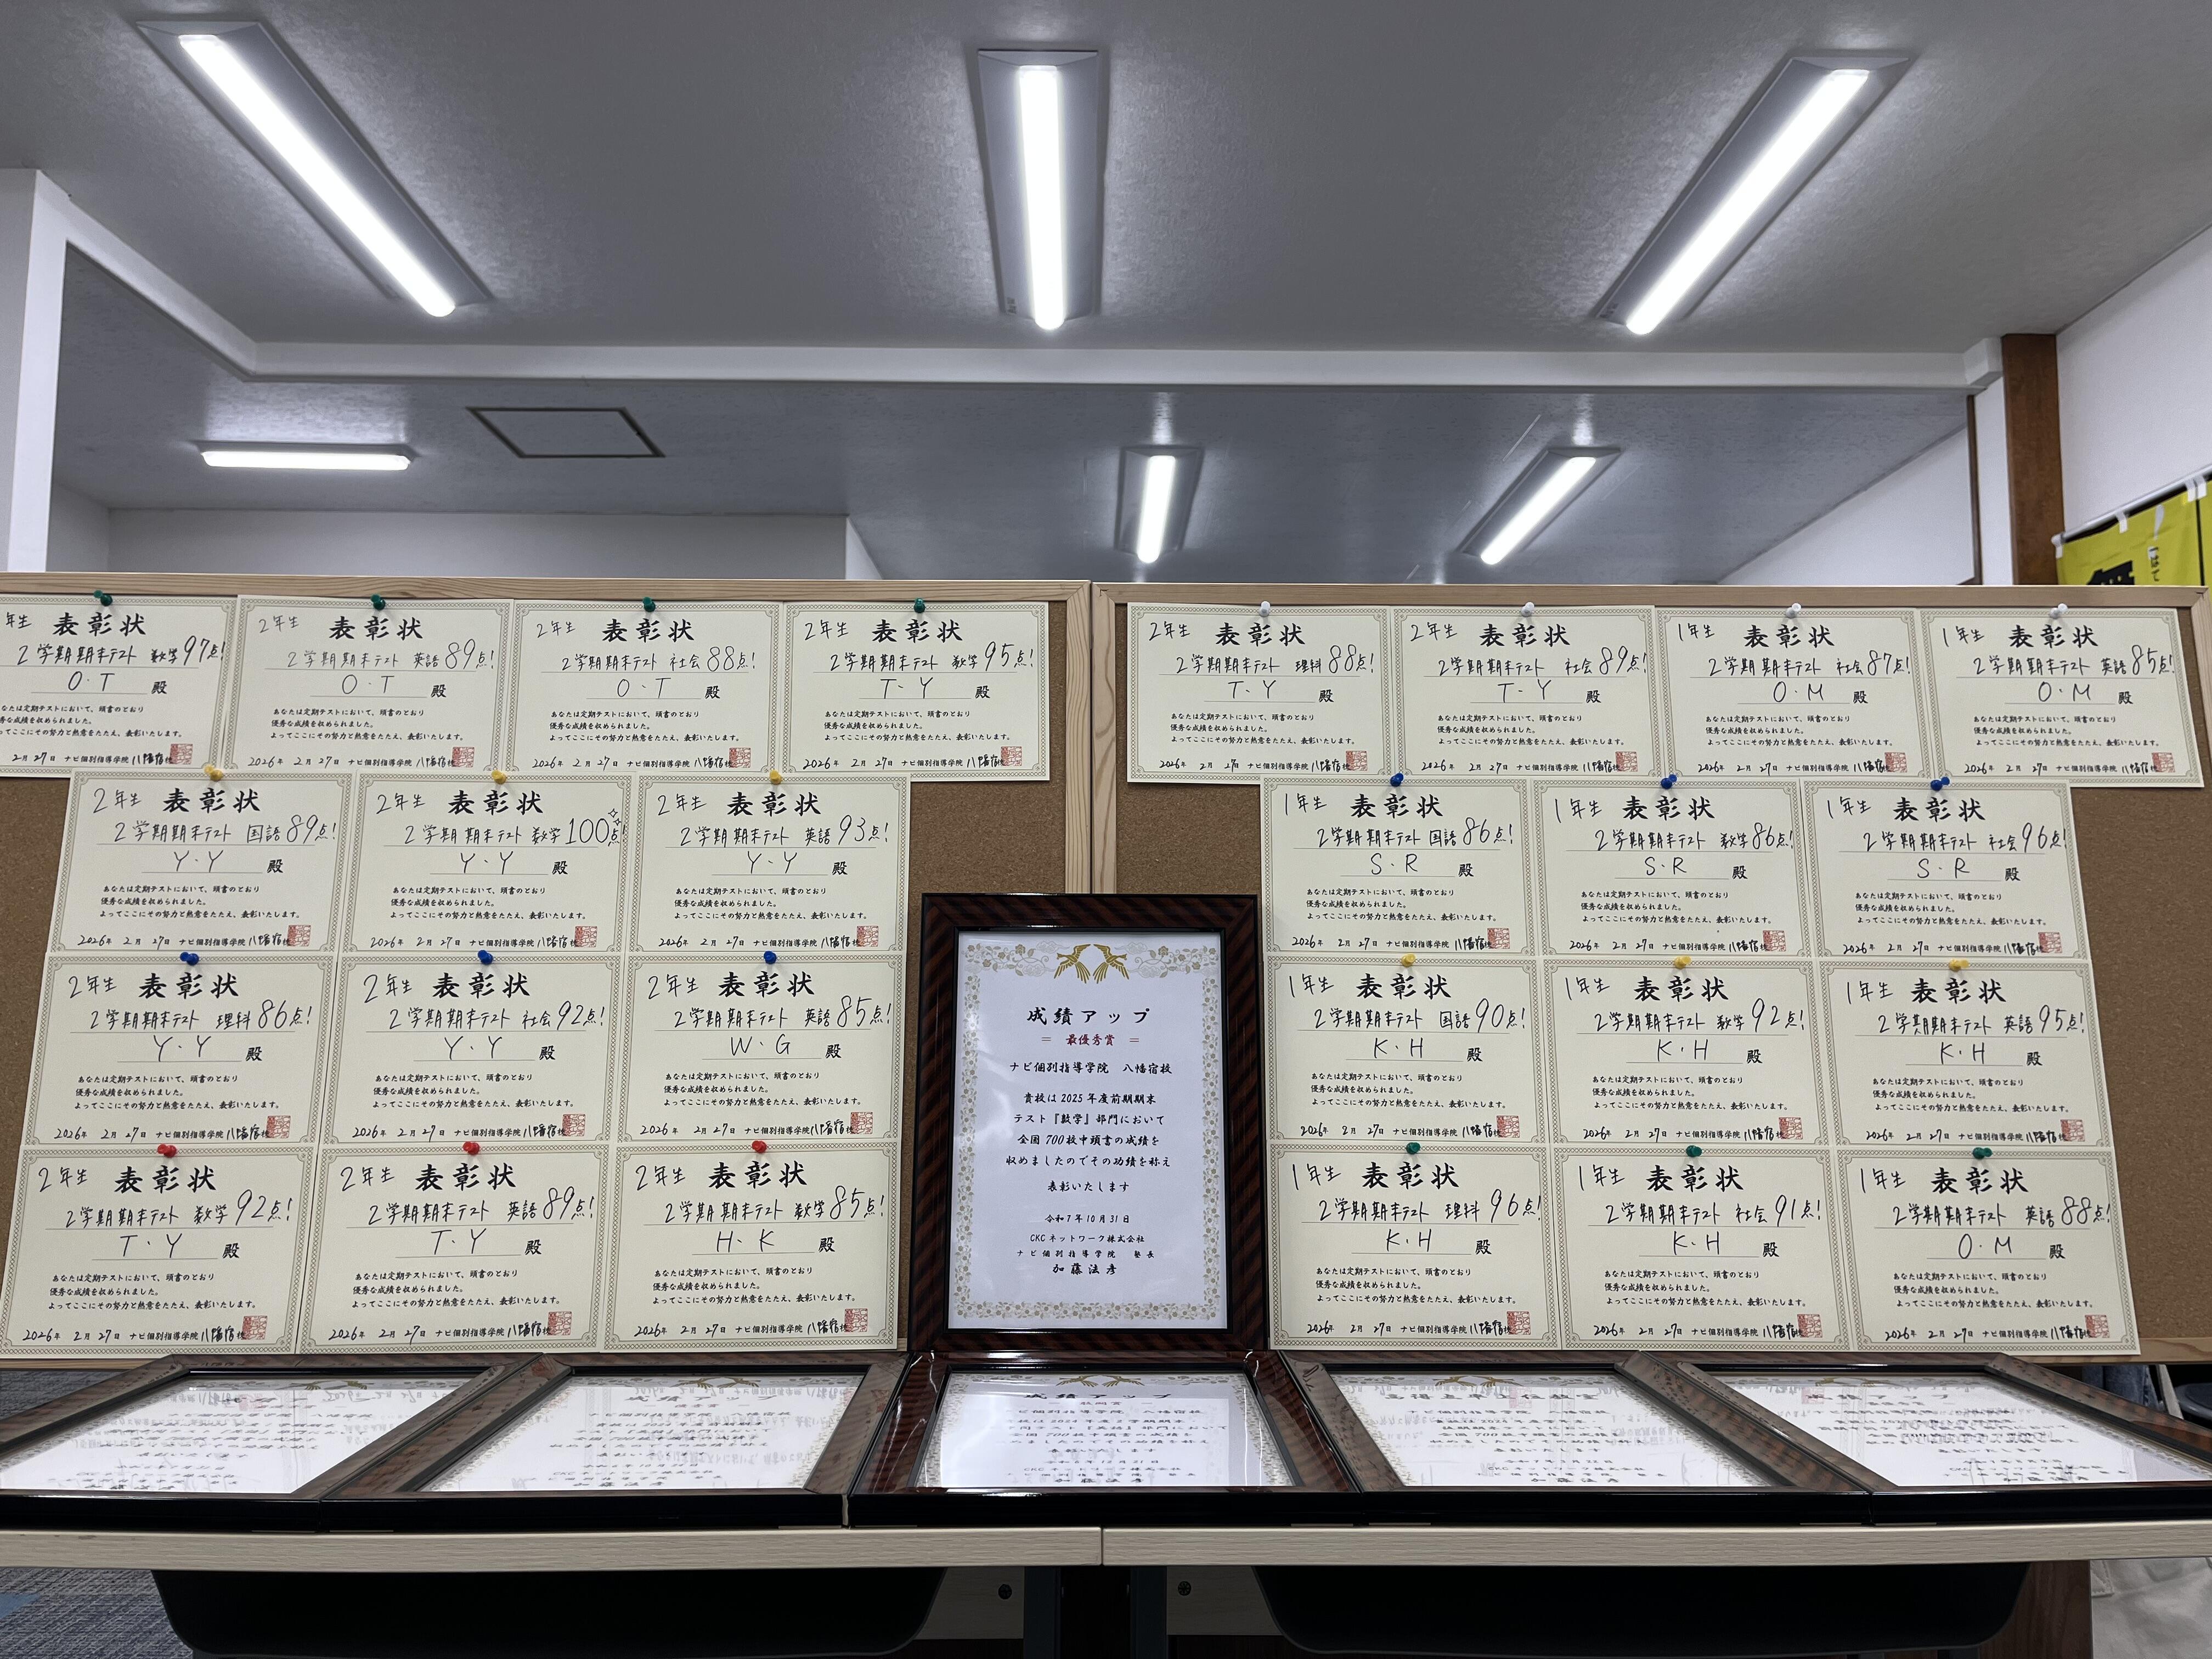 年生 表彰状
2学期期末テスト 数学97点!
O・T 殿
あなたは定期テストにおいて、頭書のとおり
優秀な成績を収められました。
よってここにその努力と熱意をたたえ、表彰いたします。
2月27日 ナビ個別指導学院 八幡宿校
2年生 表彰状
2学期期末テスト 英語89点!
O・T 殿
あなたは定期テストにおいて、頭書のとおり
優秀な成績を収められました。
よってここにその努力と熱意をたたえ、表彰いたします。
2026年 2月27日 ナビ個別指導学院 八幡宿校
2年生 表彰状
2学期期末テスト 社会88点!
O・T 殿
あなたは定期テストにおいて、頭書のとおり
優秀な成績を収められました。
よってここにその努力と熱意をたたえ、表彰いたします。
2026年 2月27日 ナビ個別指導学院 八幡宿校
2年生 表彰状
2学期期末テスト 数学95点!
T・Y 殿
あなたは定期テストにおいて、頭書のとおり
優秀な成績を収められました。
よってここにその努力と熱意をたたえ、表彰いたします。
2026年 2月27日 ナビ個別指導学院 八幡宿校
2年生 表彰状
2学期期末テスト 理科88点!
T・Y 殿
あなたは定期テストにおいて、頭書のとおり
優秀な成績を収められました。
よってここにその努力と熱意をたたえ、表彰いたします。
2026年 2月27日 ナビ個別指導学院 八幡宿校
2年生 表彰状
2学期期末テスト 社会89点!
T・Y 殿
あなたは定期テストにおいて、頭書のとおり
優秀な成績を収められました。
よってここにその努力と熱意をたたえ、表彰いたします。
2026年 2月27日 ナビ個別指導学院 八幡宿校
1年生 表彰状
2学期期末テスト 社会87点!
O・M 殿
あなたは定期テストにおいて、頭書のとおり
優秀な成績を収められました。
よってここにその努力と熱意をたたえ、表彰いたします。
2026年 2月27日 ナビ個別指導学院 八幡宿校
1年生 表彰状
2学期期末テスト 英語85点!
O・M 殿
あなたは定期テストにおいて、頭書のとおり
優秀な成績を収められました。
よってここにその努力と熱意をたたえ、表彰いたします。
2026年 2月27日 ナビ個別指導学院 八幡宿校
2年生 表彰状
2学期期末テスト 国語89点!
Y・Y 殿
あなたは定期テストにおいて、頭書のとおり
優秀な成績を収められました。
よってここにその努力と熱意をたたえ、表彰いたします。
2026年 2月27日 ナビ個別指導学院 八幡宿校
2年生 表彰状
2学期期末テスト 数学100点!
Y・Y 殿
あなたは定期テストにおいて、頭書のとおり
優秀な成績を収められました。
よってここにその努力と熱意をたたえ、表彰いたします。
2026年 2月27日 ナビ個別指導学院 八幡宿校
2年生 表彰状
2学期期末テスト 英語93点!
Y・Y 殿
あなたは定期テストにおいて、頭書のとおり
優秀な成績を収められました。
よってここにその努力と熱意をたたえ、表彰いたします。
2026年 2月27日 ナビ個別指導学院 八幡宿校
1年生 表彰状
2学期期末テスト 国語86点!
S・R 殿
あなたは定期テストにおいて、頭書のとおり
優秀な成績を収められました。
よってここにその努力と熱意をたたえ、表彰いたします。
2026年 2月27日 ナビ個別指導学院 八幡宿校
1年生 表彰状
2学期期末テスト 数学86点!
S・R 殿
あなたは定期テストにおいて、頭書のとおり
優秀な成績を収められました。
よってここにその努力と熱意をたたえ、表彰いたします。
2026年 2月27日 ナビ個別指導学院 八幡宿校
1年生 表彰状
2学期期末テスト 社会96点!
S・R 殿
あなたは定期テストにおいて、頭書のとおり
優秀な成績を収められました。
よってここにその努力と熱意をたたえ、表彰いたします。
2026年 2月27日 ナビ個別指導学院 八幡宿校
2年生 表彰状
2学期期末テスト 理科86点!
Y・Y 殿
あなたは定期テストにおいて、頭書のとおり
優秀な成績を収められました。
よってここにその努力と熱意をたたえ、表彰いたします。
2026年 2月27日 ナビ個別指導学院 八幡宿校
2年生 表彰状
2学期期末テスト 社会92点!
Y・Y 殿
あなたは定期テストにおいて、頭書のとおり
優秀な成績を収められました。
よってここにその努力と熱意をたたえ、表彰いたします。
2026年 2月27日 ナビ個別指導学院 八幡宿校
2年生 表彰状
2学期期末テスト 英語85点!
W・G 殿
あなたは定期テストにおいて、頭書のとおり
優秀な成績を収められました。
よってここにその努力と熱意をたたえ、表彰いたします。
2026年 2月27日 ナビ個別指導学院 八幡宿校
1年生 表彰状
2学期期末テスト 国語90点!
K・H 殿
あなたは定期テストにおいて、頭書のとおり
優秀な成績を収められました。
よってここにその努力と熱意をたたえ、表彰いたします。
2026年 2月27日 ナビ個別指導学院 八幡宿校
1年生 表彰状
2学期期末テスト 数学92点!
K・H 殿
あなたは定期テストにおいて、頭書のとおり
優秀な成績を収められました。
よってここにその努力と熱意をたたえ、表彰いたします。
2026年 2月27日 ナビ個別指導学院 八幡宿校
1年生 表彰状
2学期期末テスト 英語95点!
K・H 殿
あなたは定期テストにおいて、頭書のとおり
優秀な成績を収められました。
よってここにその努力と熱意をたたえ、表彰いたします。
2026年 2月27日 ナビ個別指導学院 八幡宿校
2年生 表彰状
2学期期末テスト 数学92点!
T・Y 殿
あなたは定期テストにおいて、頭書のとおり
優秀な成績を収められました。
よってここにその努力と熱意をたたえ、表彰いたします。
2026年 2月27日 ナビ個別指導学院 八幡宿校
2年生 表彰状
2学期期末テスト 英語89点!
T・Y 殿
あなたは定期テストにおいて、頭書のとおり
優秀な成績を収められました。
よってここにその努力と熱意をたたえ、表彰いたします。
2026年 2月27日 ナビ個別指導学院 八幡宿校
2年生 表彰状
2学期期末テスト 数学85点!
H・K 殿
あなたは定期テストにおいて、頭書のとおり
優秀な成績を収められました。
よってここにその努力と熱意をたたえ、表彰いたします。
2026年 2月27日 ナビ個別指導学院 八幡宿校
1年生 表彰状
2学期期末テスト 理科96点!
K・H 殿
あなたは定期テストにおいて、頭書のとおり
優秀な成績を収められました。
よってここにその努力と熱意をたたえ、表彰いたします。
2026年 2月27日 ナビ個別指導学院 八幡宿校
1年生 表彰状
2学期期末テスト 社会91点!
K・H 殿
あなたは定期テストにおいて、頭書のとおり
優秀な成績を収められました。
よってここにその努力と熱意をたたえ、表彰いたします。
2026年 2月27日 ナビ個別指導学院 八幡宿校
1年生 表彰状
2学期期末テスト 英語88点!
O・M 殿
あなたは定期テストにおいて、頭書のとおり
優秀な成績を収められました。
よってここにその努力と熱意をたたえ、表彰いたします。
2026年 2月27日 ナビ個別指導学院 八幡宿校
成績アップ
= 最優秀賞 =
ナビ個別指導学院 八幡宿校
貴校は2025年度前期期末
テスト『数学』部門において
全国700校中頭書の成績を
収めましたのでその功績を称え
表彰いたします
令和7年10月31日
CKCネットワーク株式会社
ナビ個別指導学院 塾長
加藤法彦
成績アップ
ナビ個別指導学院 八幡宿校
全国700校中頭書の成績を
表彰いたします